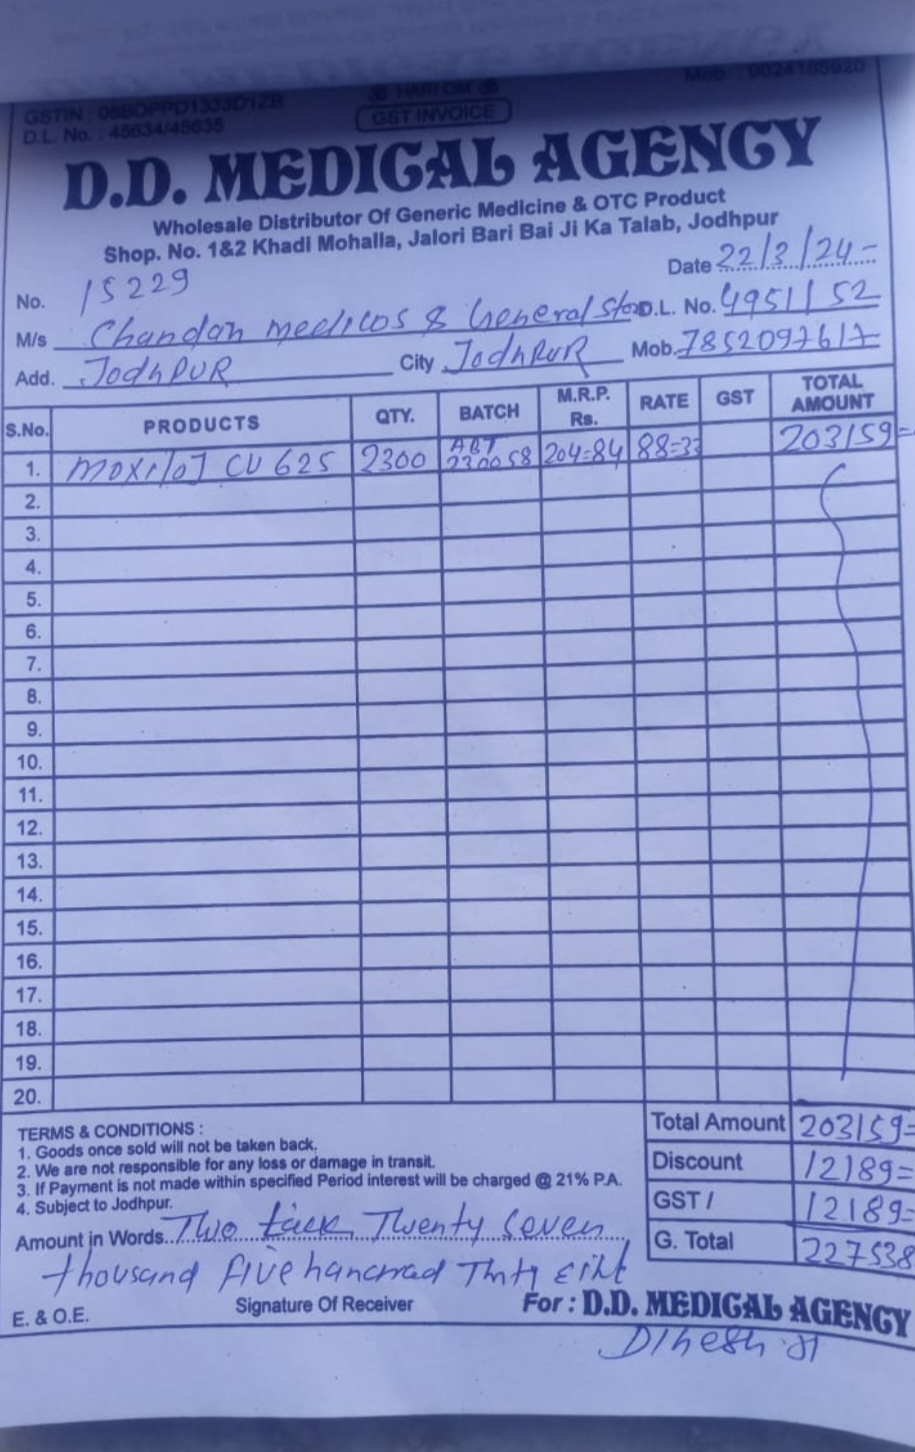 GST INVOICE
D.L. No. : 45634/45635
D.D. MEDICAL AGENCY
Wholesale Distributor Of Generic Medicine & OTC Product
Shop. No. 1&2 Khadi Mohalla, Jalori Bari Bai Ji Ka Talab, Jodhpur
No. 15229 Date 22/3/24-
M/s Chandan medicos & General Sto D.L. No. 4951/52
Add. JodhPUR City JodhPUR Mob. 7852097617
S.No. PRODUCTS QTY. BATCH M.R.P. Rs. RATE GST TOTAL AMOUNT
1. CV 625 2300 ABT 230058 204=84 88=33 203159=
2.
3.
4.
5.
6.
7.
8.
9.
10.
11.
12.
13.
14.
15.
16.
17.
18.
19.
20.
TERMS & CONDITIONS :
1. Goods once sold will not be taken back.
2. We are not responsible for any loss or damage in transit.
3. If Payment is not made within specified Period interest will be charged @ 21% P.A.
4. Subject to Jodhpur.
Total Amount 203159=
Discount 12189=
GST / 12189=
G. Total 227538
Amount in Words Two Lack Twenty Seven
thousand five hancrad Thity Eiht
E. & O.E. Signature Of Receiver For : D.D. MEDICAL AGENCY
Dinesh